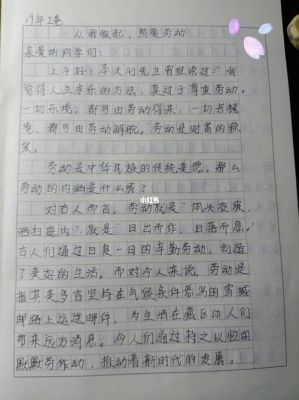 19年1卷
从我做起，热爱劳动
亲爱的同学们：
上午好！泽大利先生曾经说过："我
觉得人生求乐的方法，莫过于尊重劳动，
一切乐境，都可由劳动得来，一切苦难
境，都可由劳动解脱。"劳动是财富的源
泉。
劳动是中华民族的传统美德，那么
劳动的内涵是什么呢？
对古人而言，劳动就是"夙兴夜寐，
洒扫庭内"，就是"日出而作，日落而息。"
古人们通过日复一日的辛勤劳动，创造
了美好的生活。而对今人来说，劳动是
指其美多吉坚持在气候条件恶劣的雪域
邮路上运送邮件，为生活在藏区的人们
带来远方消息。今人们通过持之以恒的
默默劳作动，推动着新时代的发展。
小红书